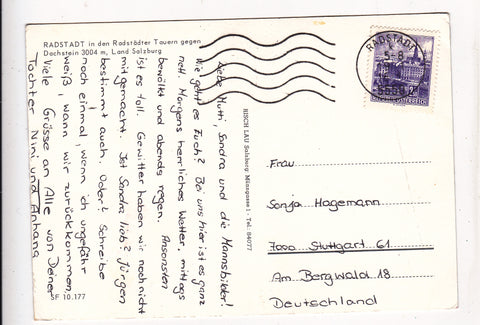 RADSTADT in den Radstädter Tauern gegen
Dachstein 3004 m, Land Salzburg
Liebe Mutti, Sandra und die Mannsbilder!
Wie geht es Euch? Bei uns hier ist es ganz
nett. Morgens herrliches Wetter, mittags
bewölkt und abends regen. Ansonsten
ist es toll. Gewitter haben wir noch nicht
mitgemacht. Ist Sandra lieb? Jürgen
bestimmt auch. Oder? Schreibe
noch einmal, wenn ich ungefähr
weiß wann wir zurückkommen.
Viele Grüsse an Alle von Deiner
Tochter Nini und Anhang
SF 10.177
RISCH LAU Salzburg Münzgasse 1 - Tel. 84077
RADSTADT
5550
2
Frau
Sonja Hagemann
7000 Stuttgart 61
Am Bergwald 18
Deutschland